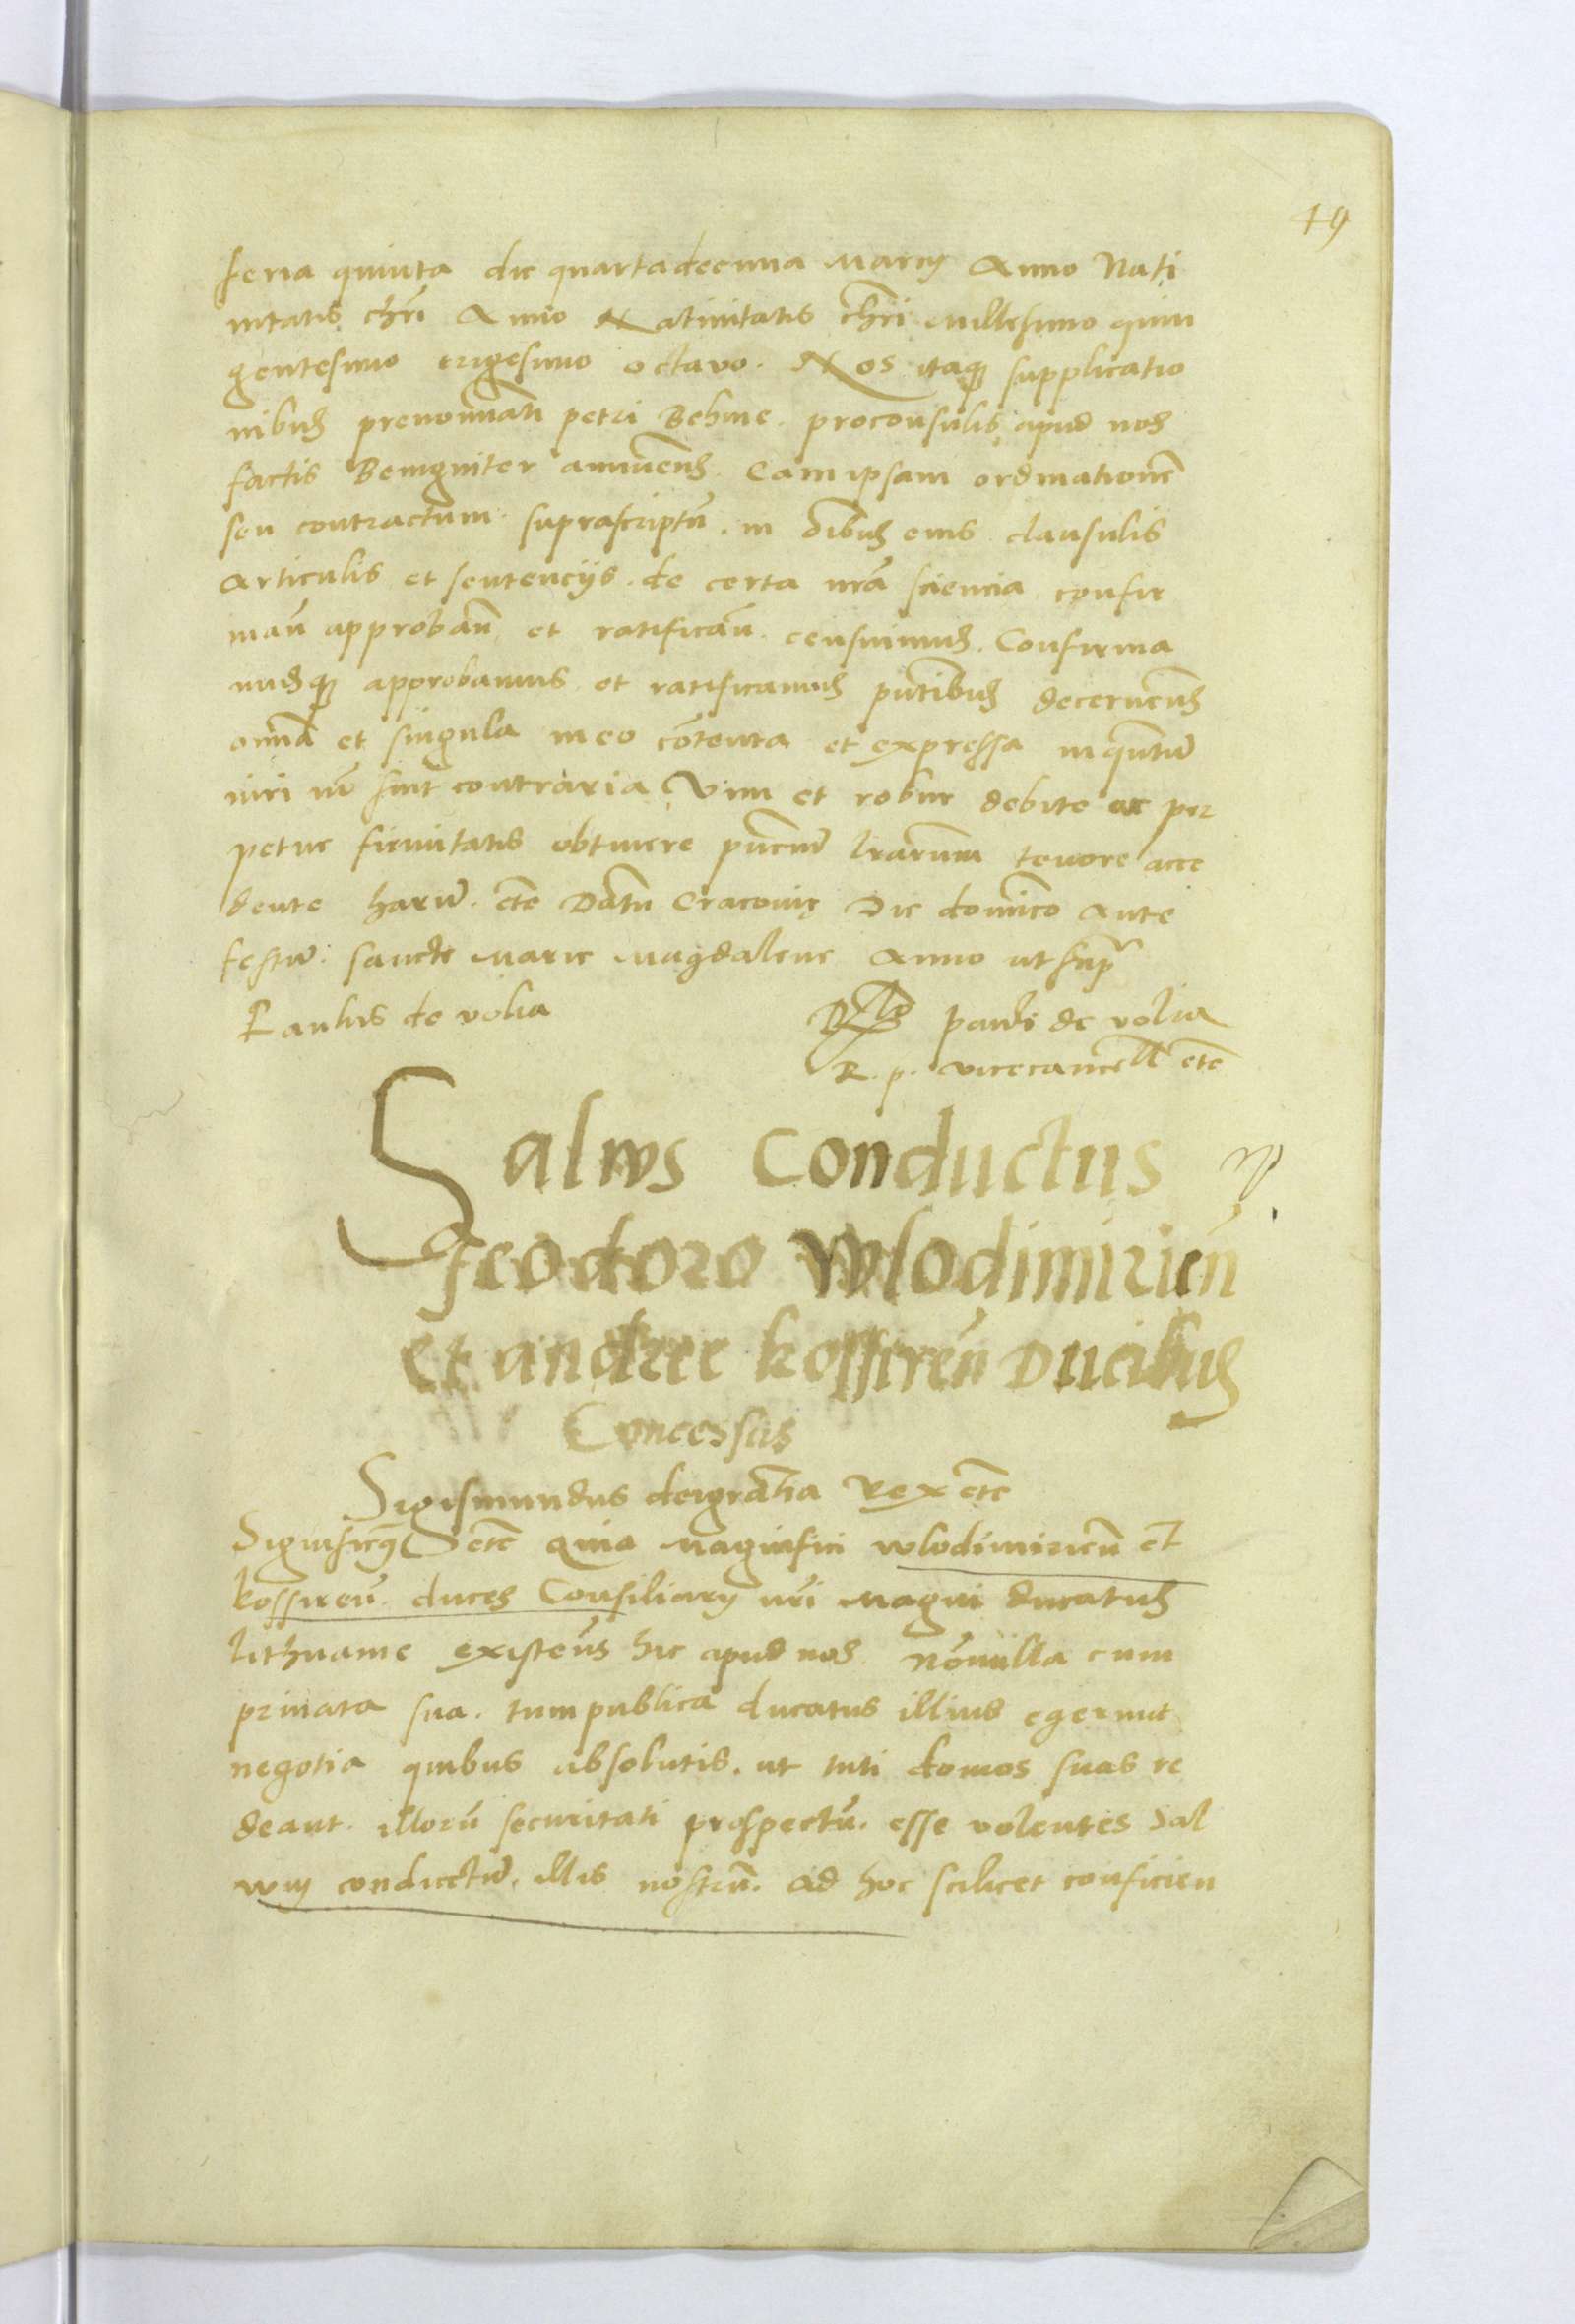 19
feria quinta die quartadecima Marcy Anno Nati
uitatis chri Anno Natiuitatis chri millesimo quin
gentesimo trigesimo octauo. Nos itaq supplicatio
nibus prenominati petri Behme. proconsulis apud nos
factis Benigniter annuens. Eam ipsam ordinationem
seu contractum. suprascriptu. in oibus eius clausulis
articulis et sentencijs. de certa nra sciencia confir
man approban et ratifican. censuimus. Confirma
musq approbamus et ratificamus pntibus decernens
omnia et singula in eo contenta et expressa inquntum
iuri no sint contraria Vim et robur debite ac per
petue firmitatis obtinere pncium lrarum tenore acce
dente harum. etc Datu Cracovie Die dominico Ante
festum. sancte Marie Magdalene Anno ut supra
Paulus de volia
Rlo pauli de volia
R. p. vicecancell etc
Salvvs Conductus
Feodoro Wlodimirien
et andree kossiren Ducibus
Concessus
Sigismundus deigratia Rex etc
Significq etc Quia Magnifici wlodimirien et
kossiren. duces Consiliary nri Magni ducatus
Lithuanie existens hic apud nos Nonnulla cum
priuata sua. tum publica ducatus illius egerunt
negotia quibus absolutis. ut tuti domos suas re
deant. illoru securitati prospectu. esse volentes Sal
vum conductum. illis nostrum. ad hoc scilicet conficien